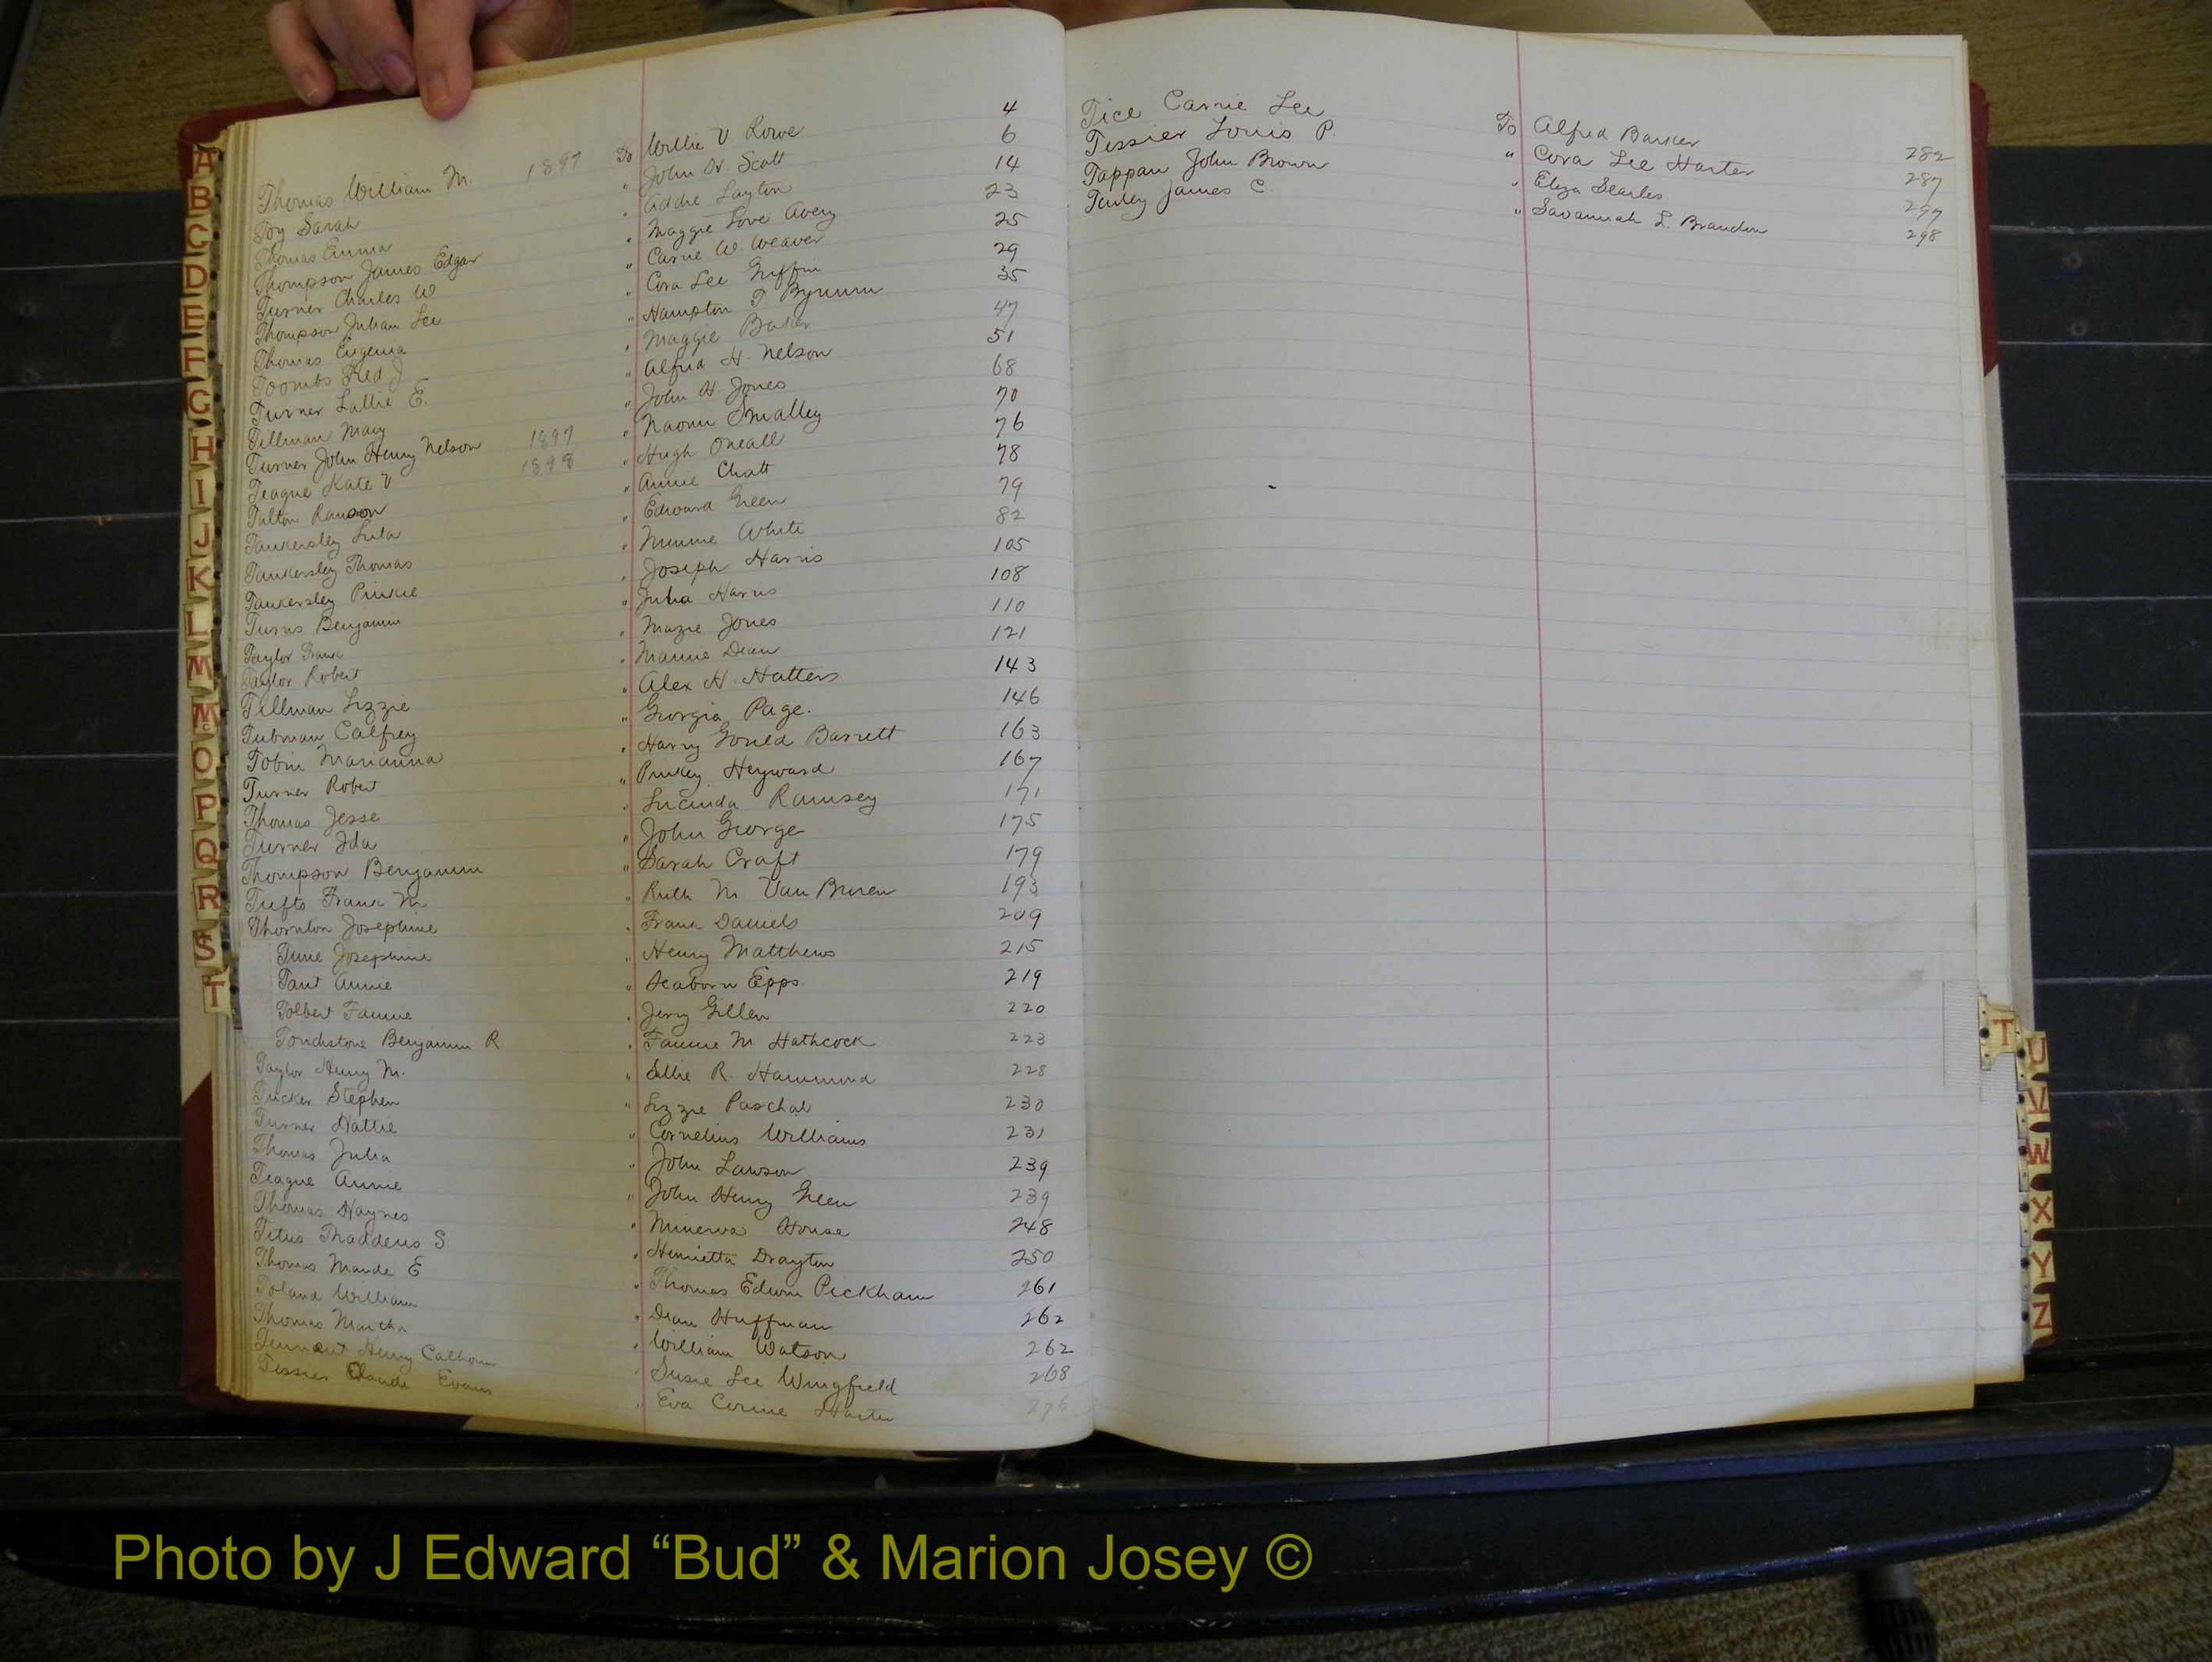 Thomas William M. 1897 To Willie V Rowe 4
Toy Sarah " John W. Scott 6
Thomas Emma " Addie Layton 14
Thompson James Edgar " Maggie Love Avery 23
Turner Charles W " Carrie W. Weaver 25
Thompson Julian Lee " Cora Lee Griffin 29
Thomas Eugenia " Hampton T Bynum 35
Toombs Fred J " Maggie Baker 47
Turner Lallie E. " Alfred H. Nelson 51
Tillman Mary " John H. Jones 68
Turner John Henry Nelson 1897 " Naomi Smalley 70
Teague Kate V 1898 " Hugh Oneall 76
Talton Ranson " Annie Chatt 78
Tankersley Lula " Edward Green 79
Tankersley Thomas " Minnie White 82
Tankersley Pinkie " Joseph Harris 105
Turns Benjamin " Julia Harris 108
Taylor Frank " Mazie Jones 110
Taylor Robert " Mamie Dean 121
Tillman Lizzie " Alex H. Hatters 143
Tubman Calfrey " Georgia Page. 146
Tobin Marianna " Harry Gould Barrett 163
Turner Robert " Pinkey Heyward 167
Thomas Jesse " Lucinda Ramsey 171
Turner Ida " John George 175
Thompson Benjamin " Sarah Craft 179
Tufts Frank M. " Ruth M Van Buren 193
Thornton Josephine " Frank Daniels 209
Tune Josephine " Henry Matthews 215
Tant Annie " Seaborn Epps 219
Tolbert Fannie " Jerry Gillen 220
Touchstone Benjamin R " Fannie M Hathcock 223
Taylor Henry M. " Sallie R. Hammond 228
Tucker Stephen " Lizzie Paschal 230
Turner Hattie " Cornelius Williams 231
Thomas Julia " John Lawson 239
Teague Annie " John Henry Green 239
Thomas Haynes " Minerva House 248
Titus Thaddeus S " Henrietta Drayton 250
Thomas Maude E " Thomas Edwin Pickham 261
Toland William " Dean Huffman 262
Thomas Martha " William Watson 262
Tennent Henry Calhoun " Susie Lee Wingfield 268
Tessier Claude Evans " Eva Corine Harter 276
Tice Carrie Lee To Alfred Barker 282
Tessier Louis P. " Cora Lee Harter 287
Tappan John Brown " Eliza Searles 297
Turley James C. " Savannah L. Brandon 298
A
B
C
D
E
F
G
H
I
J
K
L
M
Mc
O
P
Q
R
S
T
T
U
V
W
X
Y
Z
Photo by J Edward “Bud” & Marion Josey ©